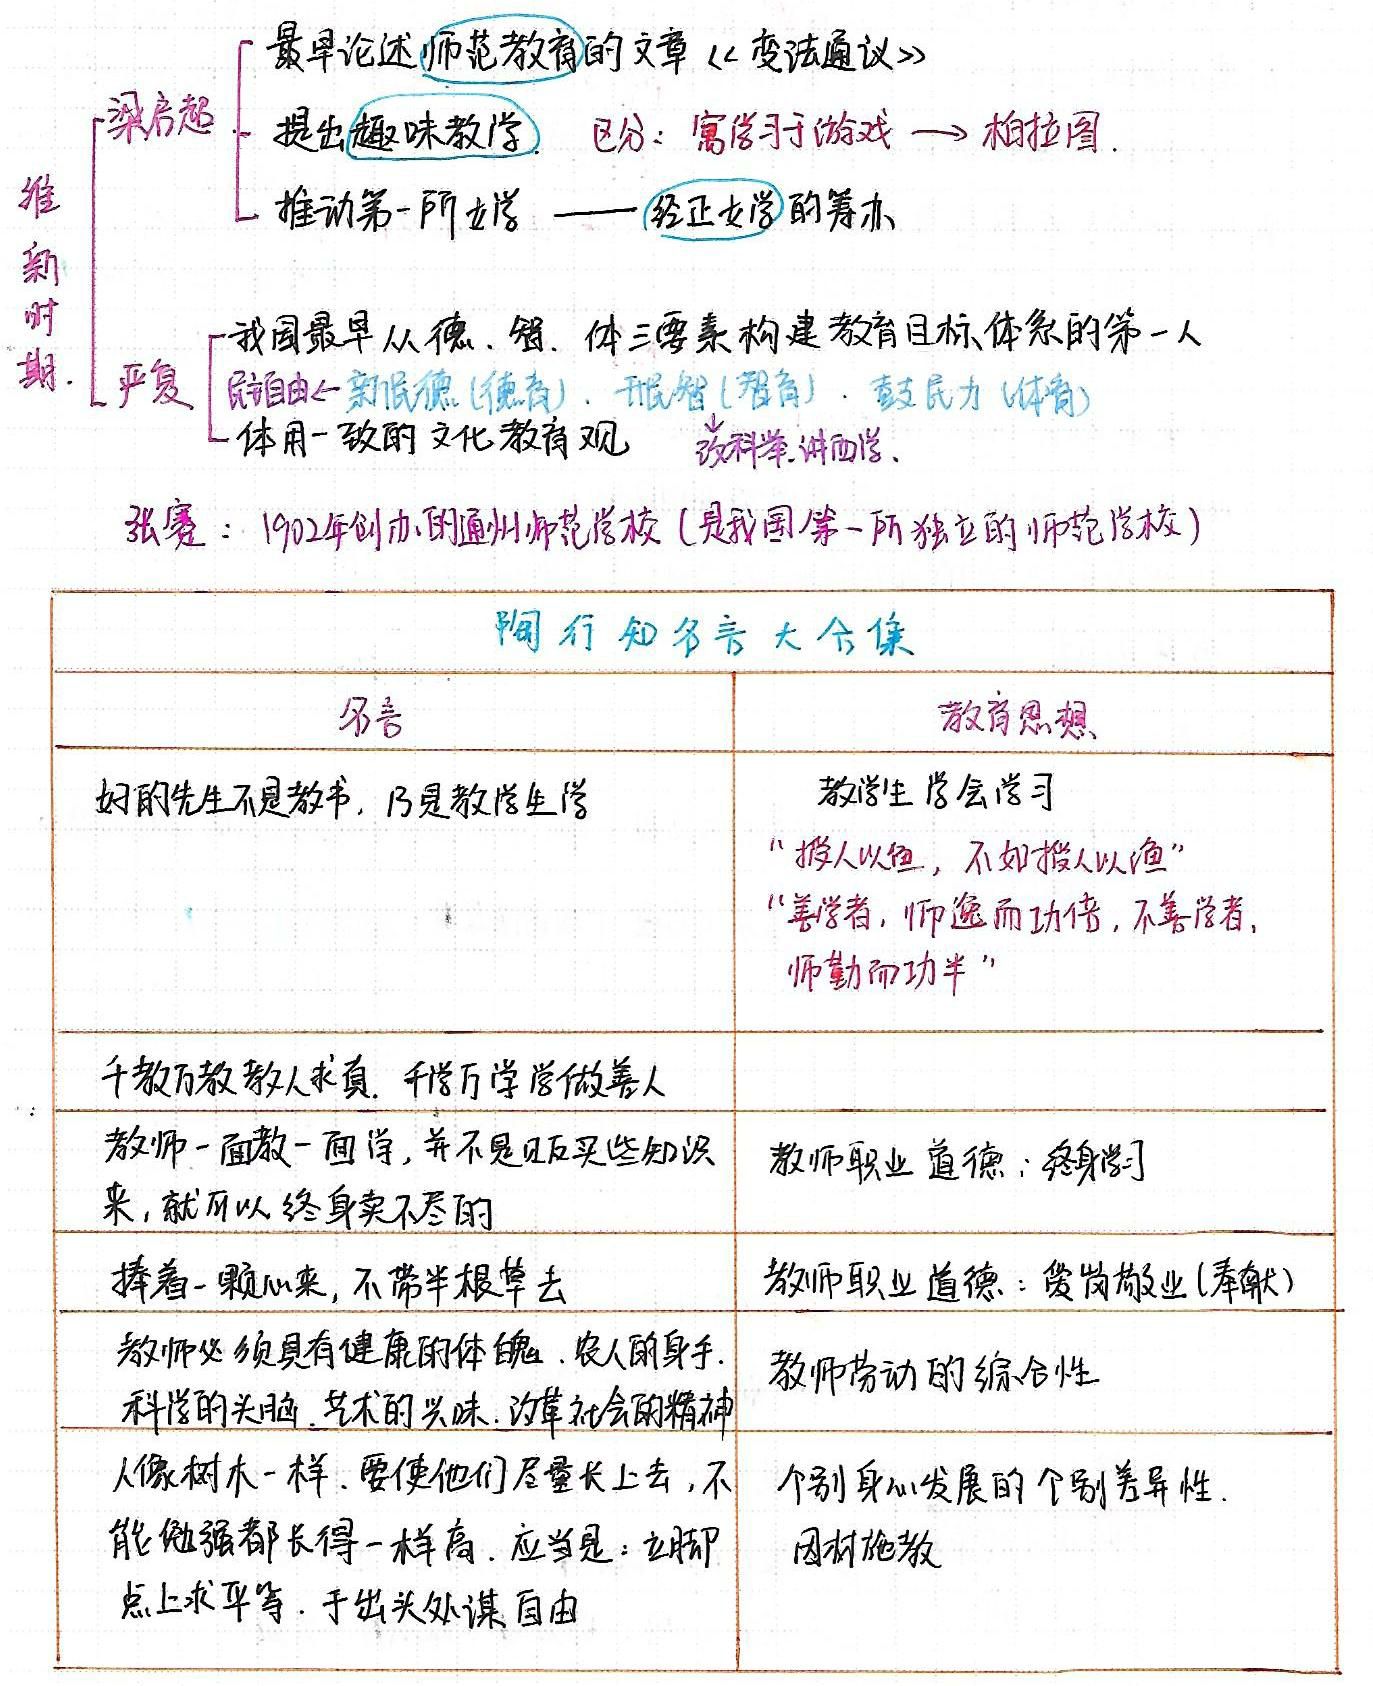 最早论述师范教育的文章《变法通议》
梁启超
提出趣味教学. 区分：寓学习于游戏 → 柏拉图.
推动第一所女学 —— 经正女学的筹办
维新时期.
我国最早从德、智、体三要素构建教育目标体系的第一人
严复
民主自由← 新民德(德育)、开民智(智育)、鼓民力(体育)
体用一致的文化教育观
↓
改科举.讲西学、
张謇：1902年创办的通州师范学校(是我国第一所独立的师范学校)
陶行知名言大合集
名言 教育思想
好的先生不是教书，乃是教学生学
教学生学会学习
“授人以鱼，不如授人以渔”
“善学者，师逸而功倍，不善学者，
师勤而功半”
千教万教教人求真. 千学万学学做善人
教师一面教一面学，并不是贩买些知识
来，就可以终身卖不尽的
教师职业道德：终身学习
捧着一颗心来，不带半根草去
教师职业道德：爱岗敬业(奉献)
教师必须具有健康的体魄、农人的身手.
科学的头脑、艺术的兴味、改革社会的精神
教师劳动的综合性
人像树木一样、要使他们尽量长上去，不
能勉强都长得一样高、应当是：立脚
点上求平等、于出头处谋自由
个别身心发展的个别差异性.
因材施教